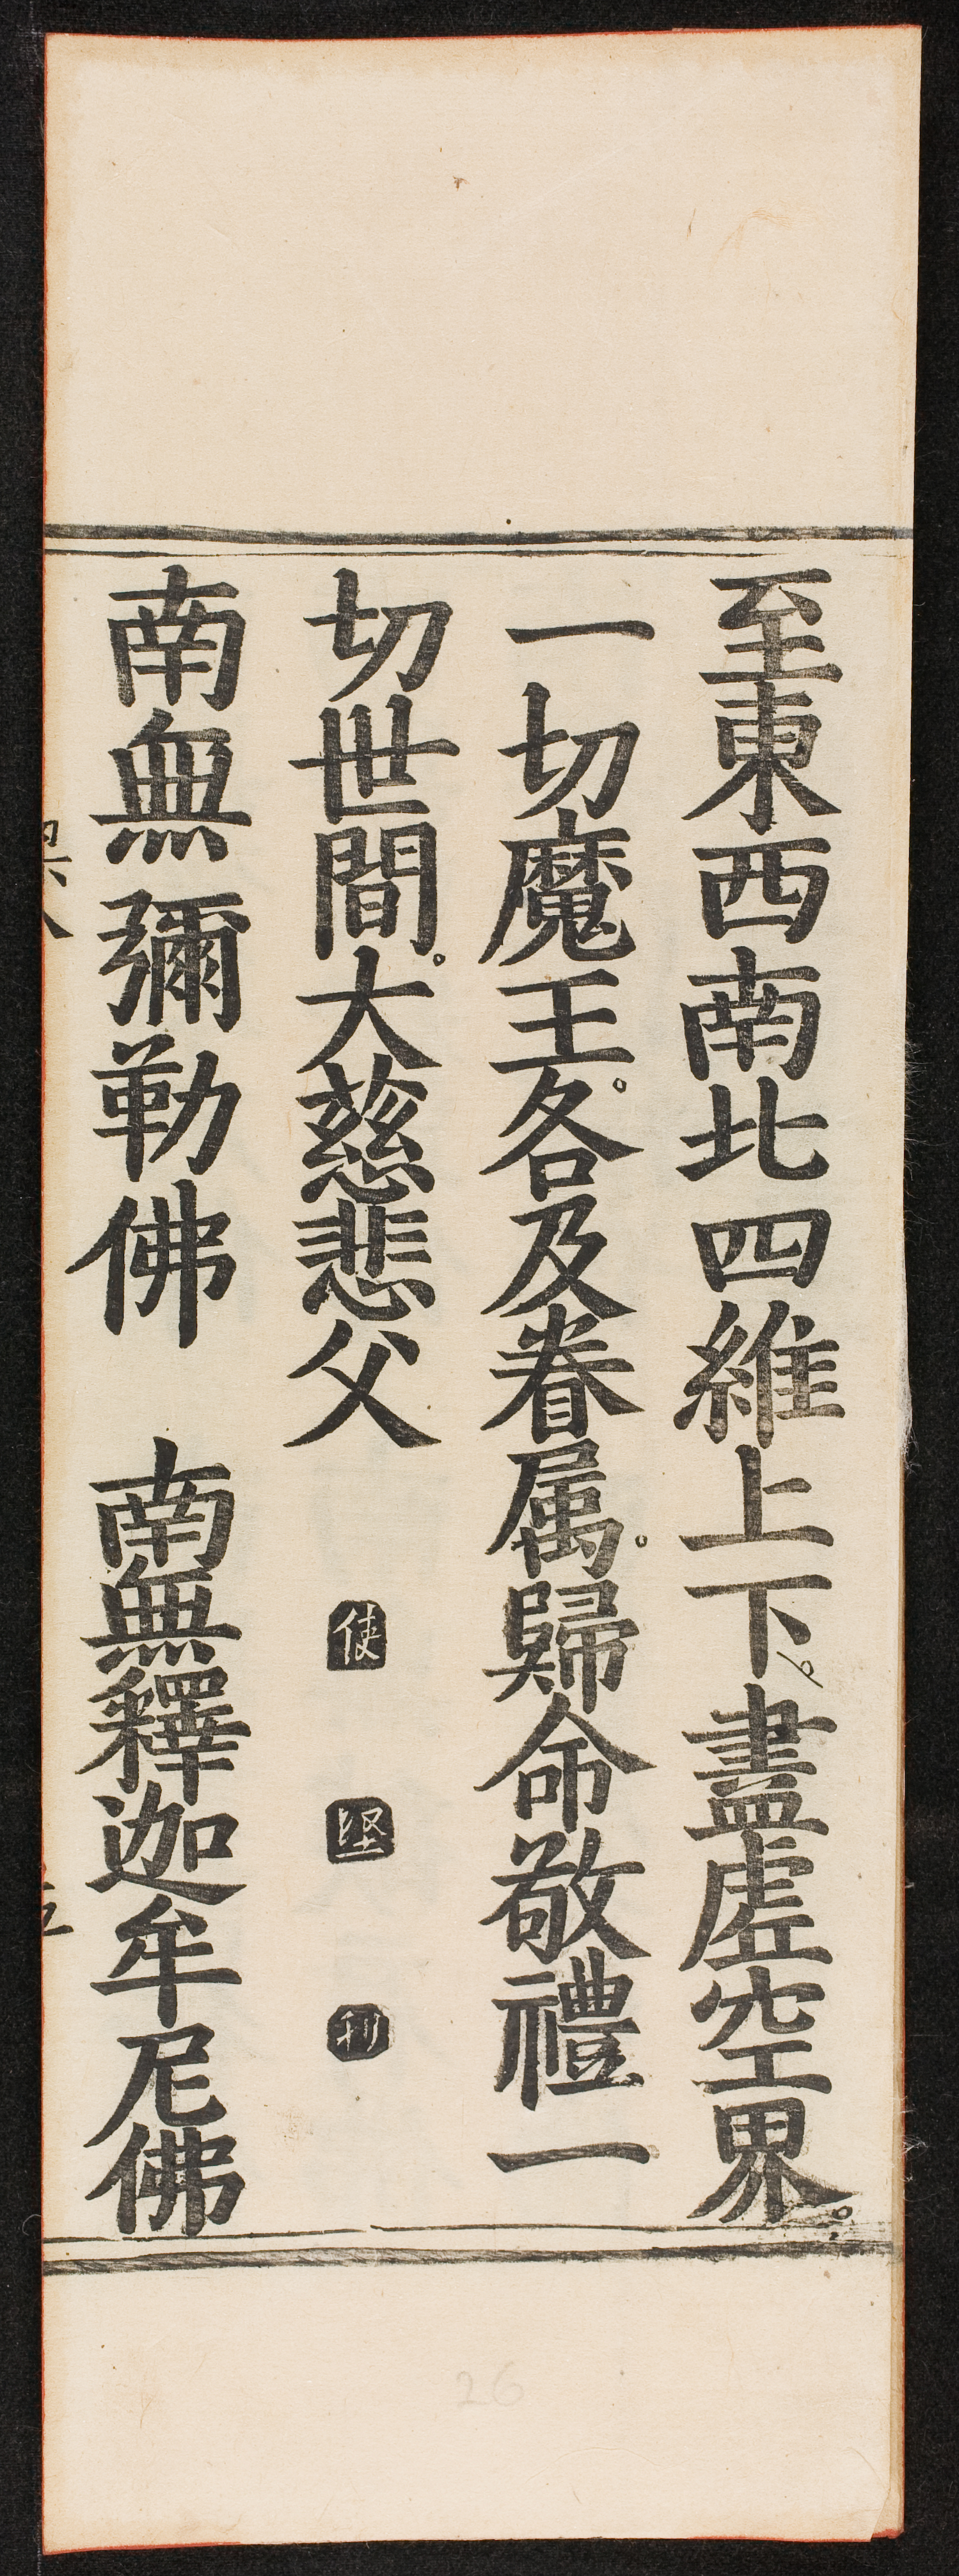 至東西南北四維上下。盡虛空界。
一切魔王。各及眷属。歸命敬禮一
切世間。大慈悲父 使 坚 利
南無彌勒佛 南無釋迦牟尼佛
26